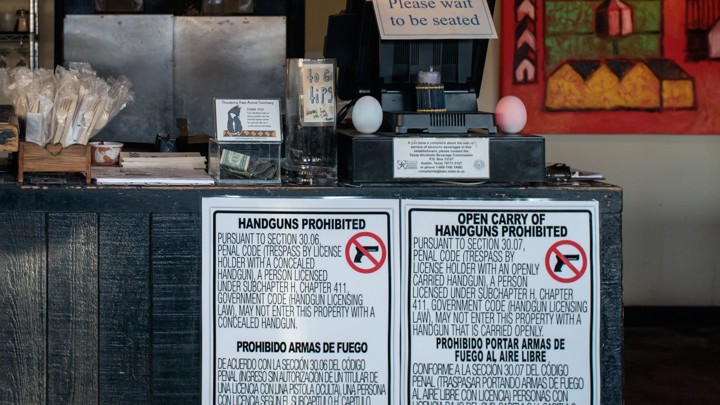 Please wait
to be seated
to Go
TIPS
If you have a complaint about the sale or
service of alcoholic beverages in this
establishment, please contact the
Texas Alcoholic Beverage Commission
P.O. Box 13127
Austin, Texas
HANDGUNS PROHIBITED
PURSUANT TO SECTION 30.06,
PENAL CODE (TRESPASS BY LICENSE
HOLDER WITH A CONCEALED
HANDGUN), A PERSON LICENSED
UNDER SUBCHAPTER H, CHAPTER 411,
GOVERNMENT CODE (HANDGUN LICENSING
LAW), MAY NOT ENTER THIS PROPERTY WITH A
CONCEALED HANDGUN.
PROHIBIDO ARMAS DE FUEGO
DE ACUERDO CON LA SECCIÓN 30.06 DEL CÓDIGO
PENAL (INGRESO SIN AUTORIZACIÓN DE UN TITULAR DE
UNA LICENCIA CON UNA PISTOLA OCULTA), UNA PERSONA
CON LICENCIA SEGÚN EL SUBCAPÍTULO H, CAPÍTULO
OPEN CARRY OF
HANDGUNS PROHIBITED
PURSUANT TO SECTION 30.07,
PENAL CODE (TRESPASS BY
LICENSE HOLDER WITH AN OPENLY
CARRIED HANDGUN), A PERSON
LICENSED UNDER SUBCHAPTER H, CHAPTER
411, GOVERNMENT CODE (HANDGUN LICENSING
LAW), MAY NOT ENTER THIS PROPERTY WITH A
HANDGUN THAT IS CARRIED OPENLY.
PROHIBIDO PORTAR ARMAS DE
FUEGO AL AIRE LIBRE
CONFORME A LA SECCIÓN 30.07 DEL CÓDIGO
PENAL (TRASPASAR PORTANDO ARMAS DE FUEGO
AL AIRE LIBRE CON LICENCIA) PERSONAS CON